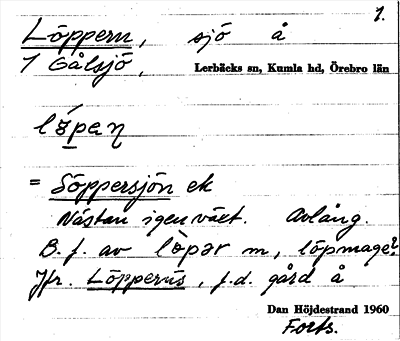 1.
Löppern, sjö å
1 Gålsjö, Lerbäcks sn, Kumla hd, Örebro län
= Söppersjön ek
Nästan igenväxt. Avlång.
B. f. av lòpər m, löpmage?
Jfr. Löpperüs, f.d. gård å
Dan Höjdestrand 1960
Forts.